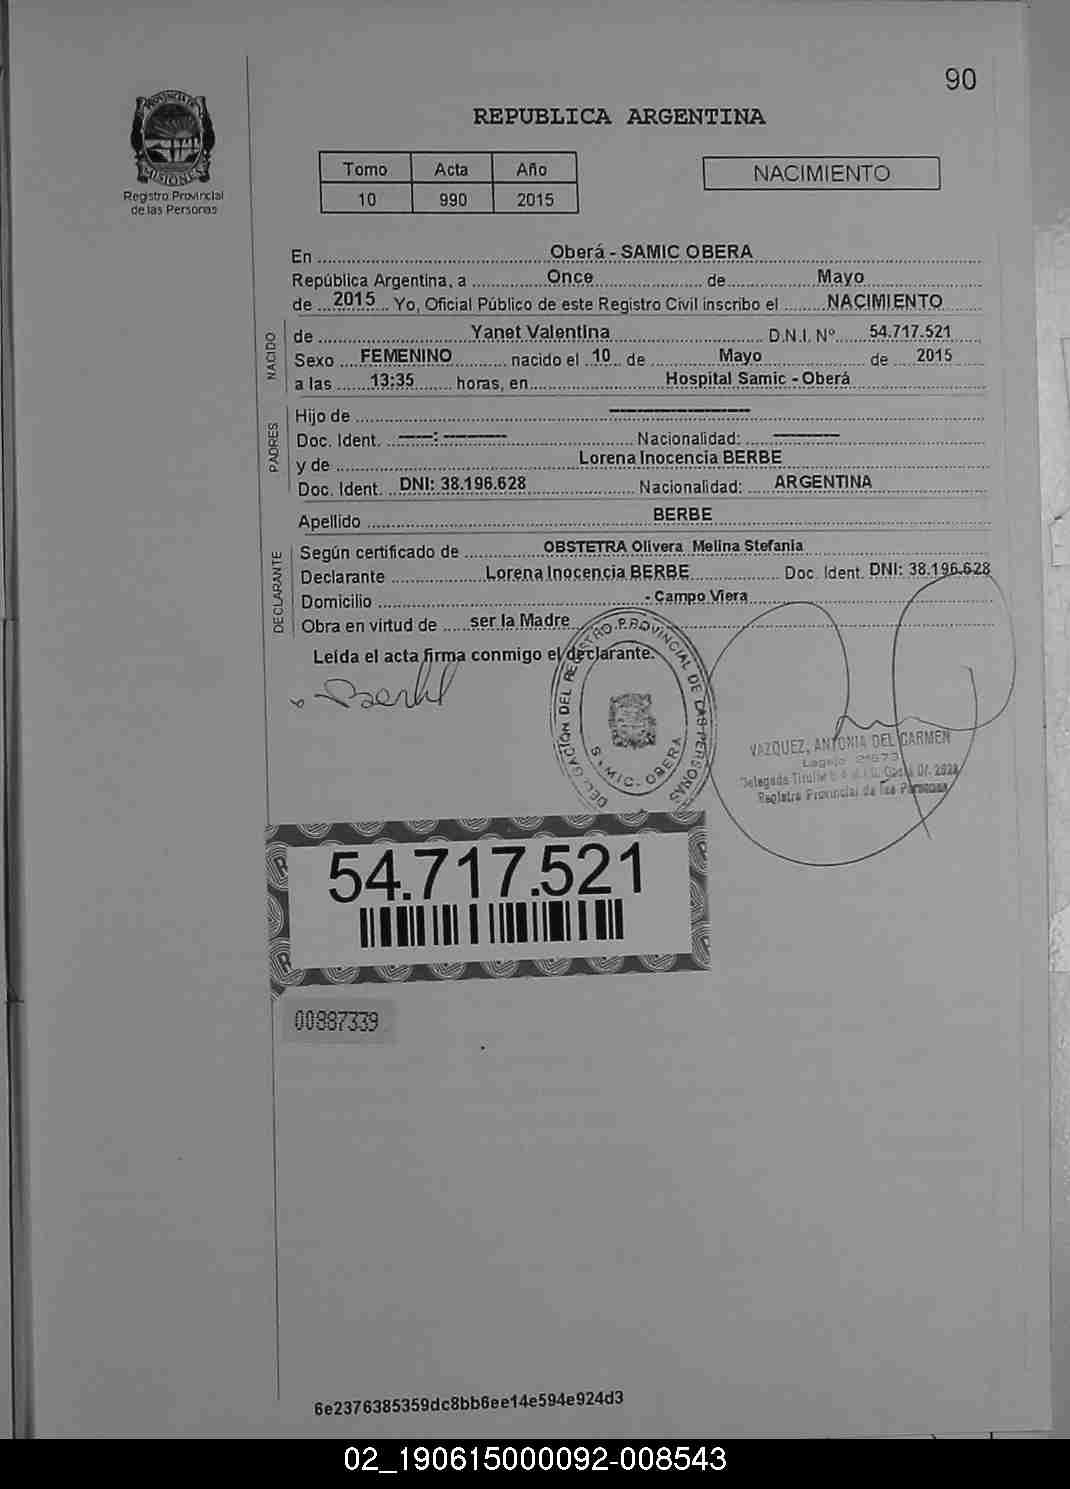 90
PROVINCIA DE
MISIONES
Registro Provincial
de las Personas
REPUBLICA ARGENTINA
Tomo Acta Año
10 990 2015
NACIMIENTO
En Oberá - SAMIC OBERA
República Argentina, a Once de Mayo
de 2015 Yo, Oficial Público de este Registro Civil inscribo el NACIMIENTO
NACIDO
de Yanet Valentina D.N.I. Nº 54.717.521
Sexo FEMENINO nacido el 10 de Mayo de 2015
a las 13:35 horas, en Hospital Samic - Oberá
PADRES
Hijo de ----------------
Doc. Ident. ----: -------- Nacionalidad: --------
y de Lorena Inocencia BERBE
Doc. Ident. DNI: 38.196.628 Nacionalidad: ARGENTINA
Apellido BERBE
DECLARANTE
Según certificado de OBSTETRA Olivera Melina Stefania
Declarante Lorena Inocencia BERBE Doc. Ident. DNI: 38.196.628
Domicilio - Campo Viera
Obra en virtud de ser la Madre
Leída el acta firma conmigo el declarante.
Berbe
DELEGACIÓN DEL REGISTRO PROVINCIAL DE LAS PERSONAS
SAMIC - OBERA
VAZQUEZ, ANTONIA DEL CARMEN
Legajo
Delegada Titular
Registro Provincial de las Personas
54.717.521
00887339
6e2376385359dc8bb6ee14e594e924d3
02_190615000092-008543